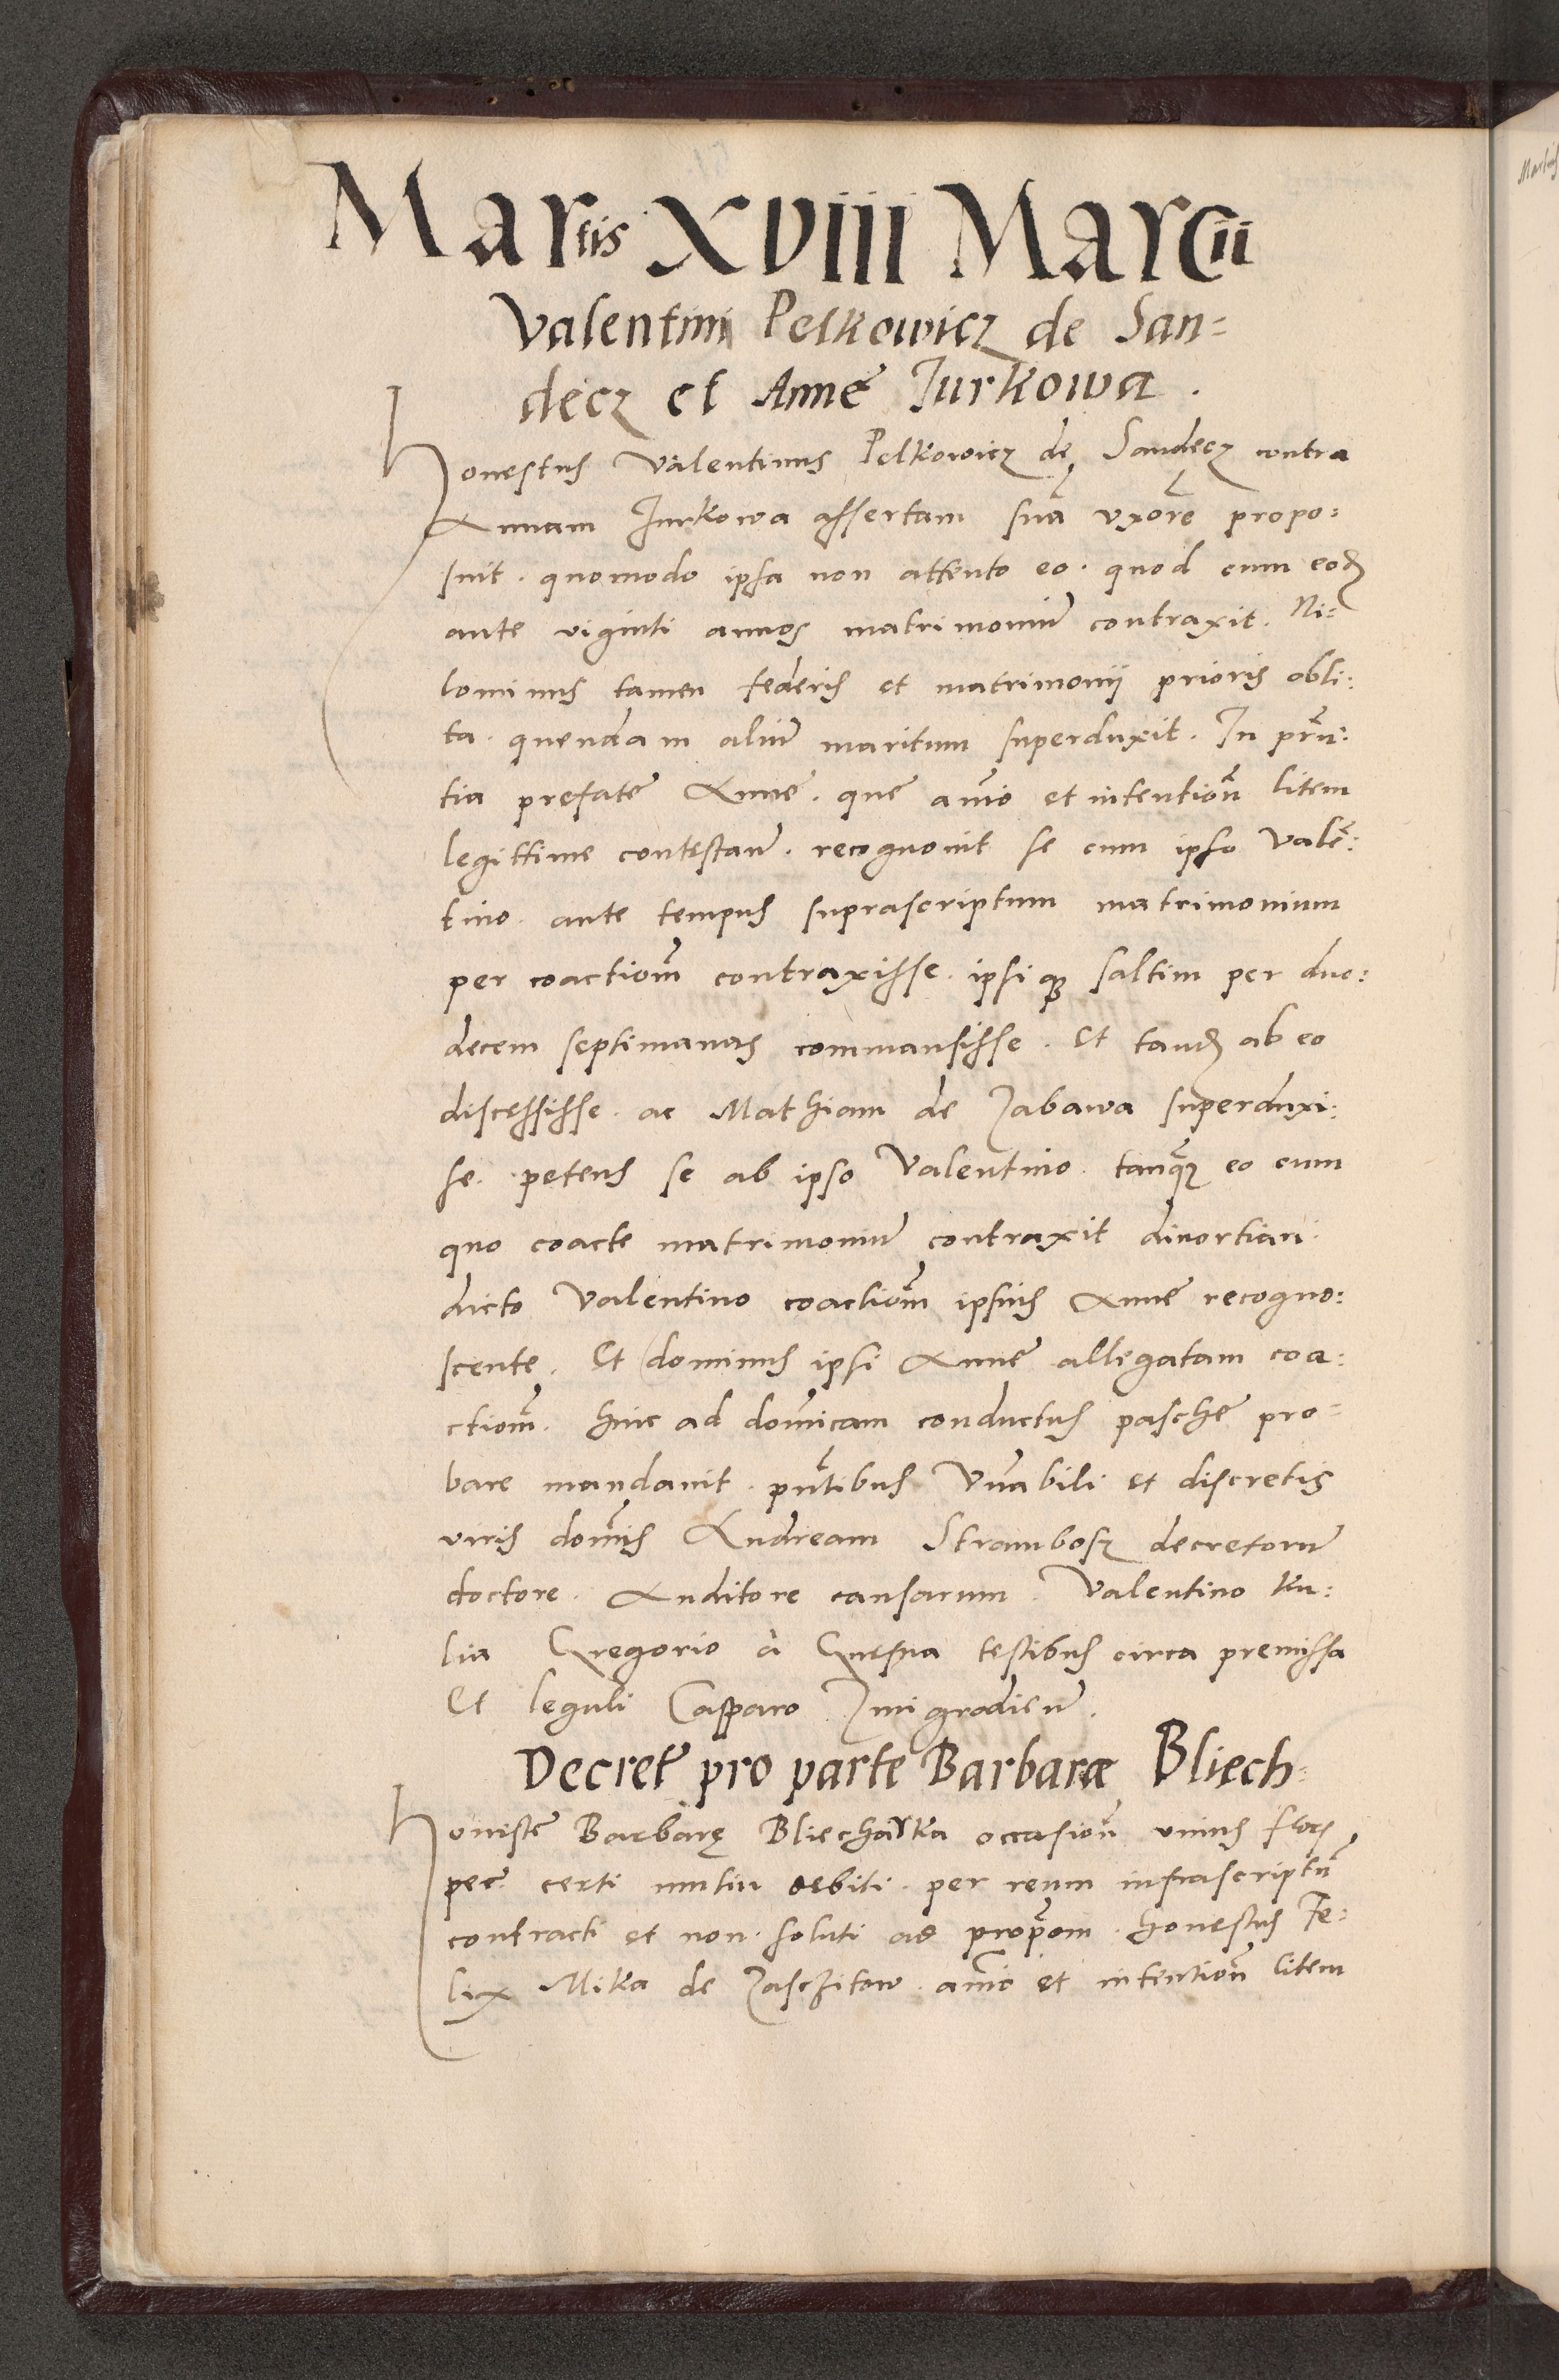 Martis XVIIII Marcii
Valentini Pelkowicz de San=
decz et Annę Jurkowa.
Honestus Valentinus Pelkowicz de Sandecz contra
Annam Jurkowa assertam suā vxorē propo:
suit. quomodo ipsa non attento eo. quod cum eodē
ante viginti annos matrimoniū contraxit. Ni:
lominus tamen federis et matrimonij prioris obli:
ta. quendam aliū maritum superduxit. In pn̄:
tia prefatę Annę. quę anīo et intentiōn litem
legittime contestanᷤ. recognouit se cum ipso Valē:
tino ante tempus suprascriptum matrimonium
per coactioēm contraxisse. ipsiqꝫ saltim per duo:
decem septimanas commansisse. Et tandē ab eo
discessisse. ac Mathiam de Zabawa superduxi:
sse. petens se ab ipso Valentino. tanqꝫ eo cum
quo coacte matrimoniū contraxit diuortiari.
dicto Valentino coactioēm ipsius Annę recogno:
scente. Et dominus ipsi Annę allegatam coa:
ctioēm. hinc ad domīcam conductus paschę pro=
bare mandauit. pn̄tibus Vn̄abili et discretis
viris domīs Andream Strambosz decretorū
doctore. Auditore causarum. Valentino Ku:
lia Gregorio à Gnesna testibus circa premissa
Et leguli Casparo Zmigrodienᷤ.
Decretū pro parte Barbaræ Bliech=
Honestę Barbarę Bliecharka occasiōn vnius flore
pecᷤ certi mutui debiti. per reum infrascriptū
contracti et non. soluti ad propōem. honestus Fe:
lix Mika de Zaschitow. anīo et intentiōn litem